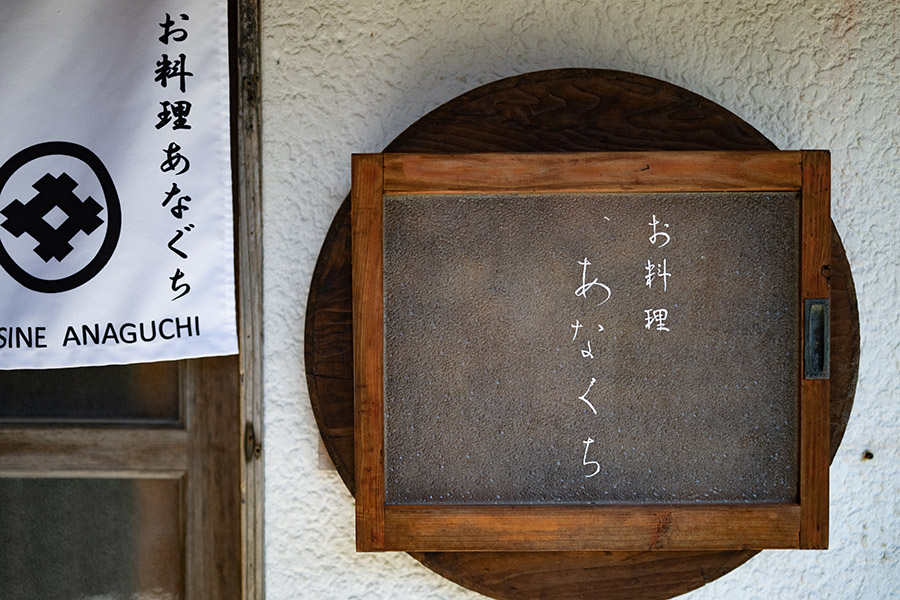 お料理あなぐち
SINE ANAGUCHI
お料理
あなぐち